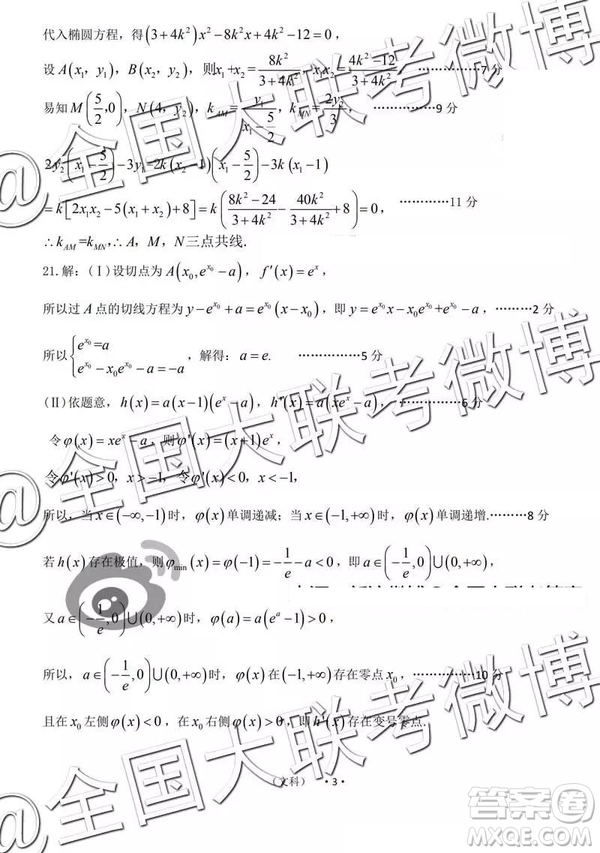 代入椭圆方程，得(3+4k²)x²-8k²x+4k²-12=0，
设A(x₁,y₁)，B(x₂,y₂)，则x₁+x₂=8k²/(3+4k²)，x₁x₂=(4k²-12)/(3+4k²)，……………7分
易知M(5/2,0)，N(4,y₂)，k_AM=y₁/(x₁-5/2)，k_MN=2y₂/3，……………9分
2y₂(x₁-5/2)-3y₁=2k(x₂-1)(x₁-5/2)-3k(x₁-1)
=k[2x₁x₂-5(x₁+x₂)+8]=k((8k²-24)/(3+4k²)-40k²/(3+4k²)+8)=0，…………11分
∴k_AM=k_MN，∴A，M，N三点共线.
21.解：(Ⅰ)设切点为A(x₀,e^{x₀}-a)，f′(x)=e^x，
所以过A点的切线方程为y-e^{x₀}+a=e^{x₀}(x-x₀)，即y=e^{x₀}x-x₀e^{x₀}+e^{x₀}-a，………2分
所以{e^{x₀}=a
e^{x₀}-x₀e^{x₀}-a=-a，解得：a=e. ……………5分
(Ⅱ)依题意，h(x)=a(x-1)(e^x-a)，h′(x)=a(xe^x-a)，……………6分
令φ(x)=xe^x-a，则φ′(x)=(x+1)e^x，
令φ′(x)>0，x>-1，令φ′(x)<0，x<-1，
所以，当x∈(-∞,-1)时，φ(x)单调递减；当x∈(-1,+∞)时，φ(x)单调递增.………8分
若h(x)存在极值，则φ_min(x)=φ(-1)=-1/e-a<0，即a∈(-1/e,0)∪(0,+∞)，
又a∈(-1/e,0)∪(0,+∞)时，φ(a)=a(e^a-1)>0，
所以，a∈(-1/e,0)∪(0,+∞)，φ(x)在(-1,+∞)存在零点x₀，……………10分
且在x₀左侧φ(x)<0，在x₀右侧φ(x)>0，即h′(x)存在变号零点.
（文科） ·3·
@全国大联考微博
@全国大联考微博
答案圈
MXQE.COM